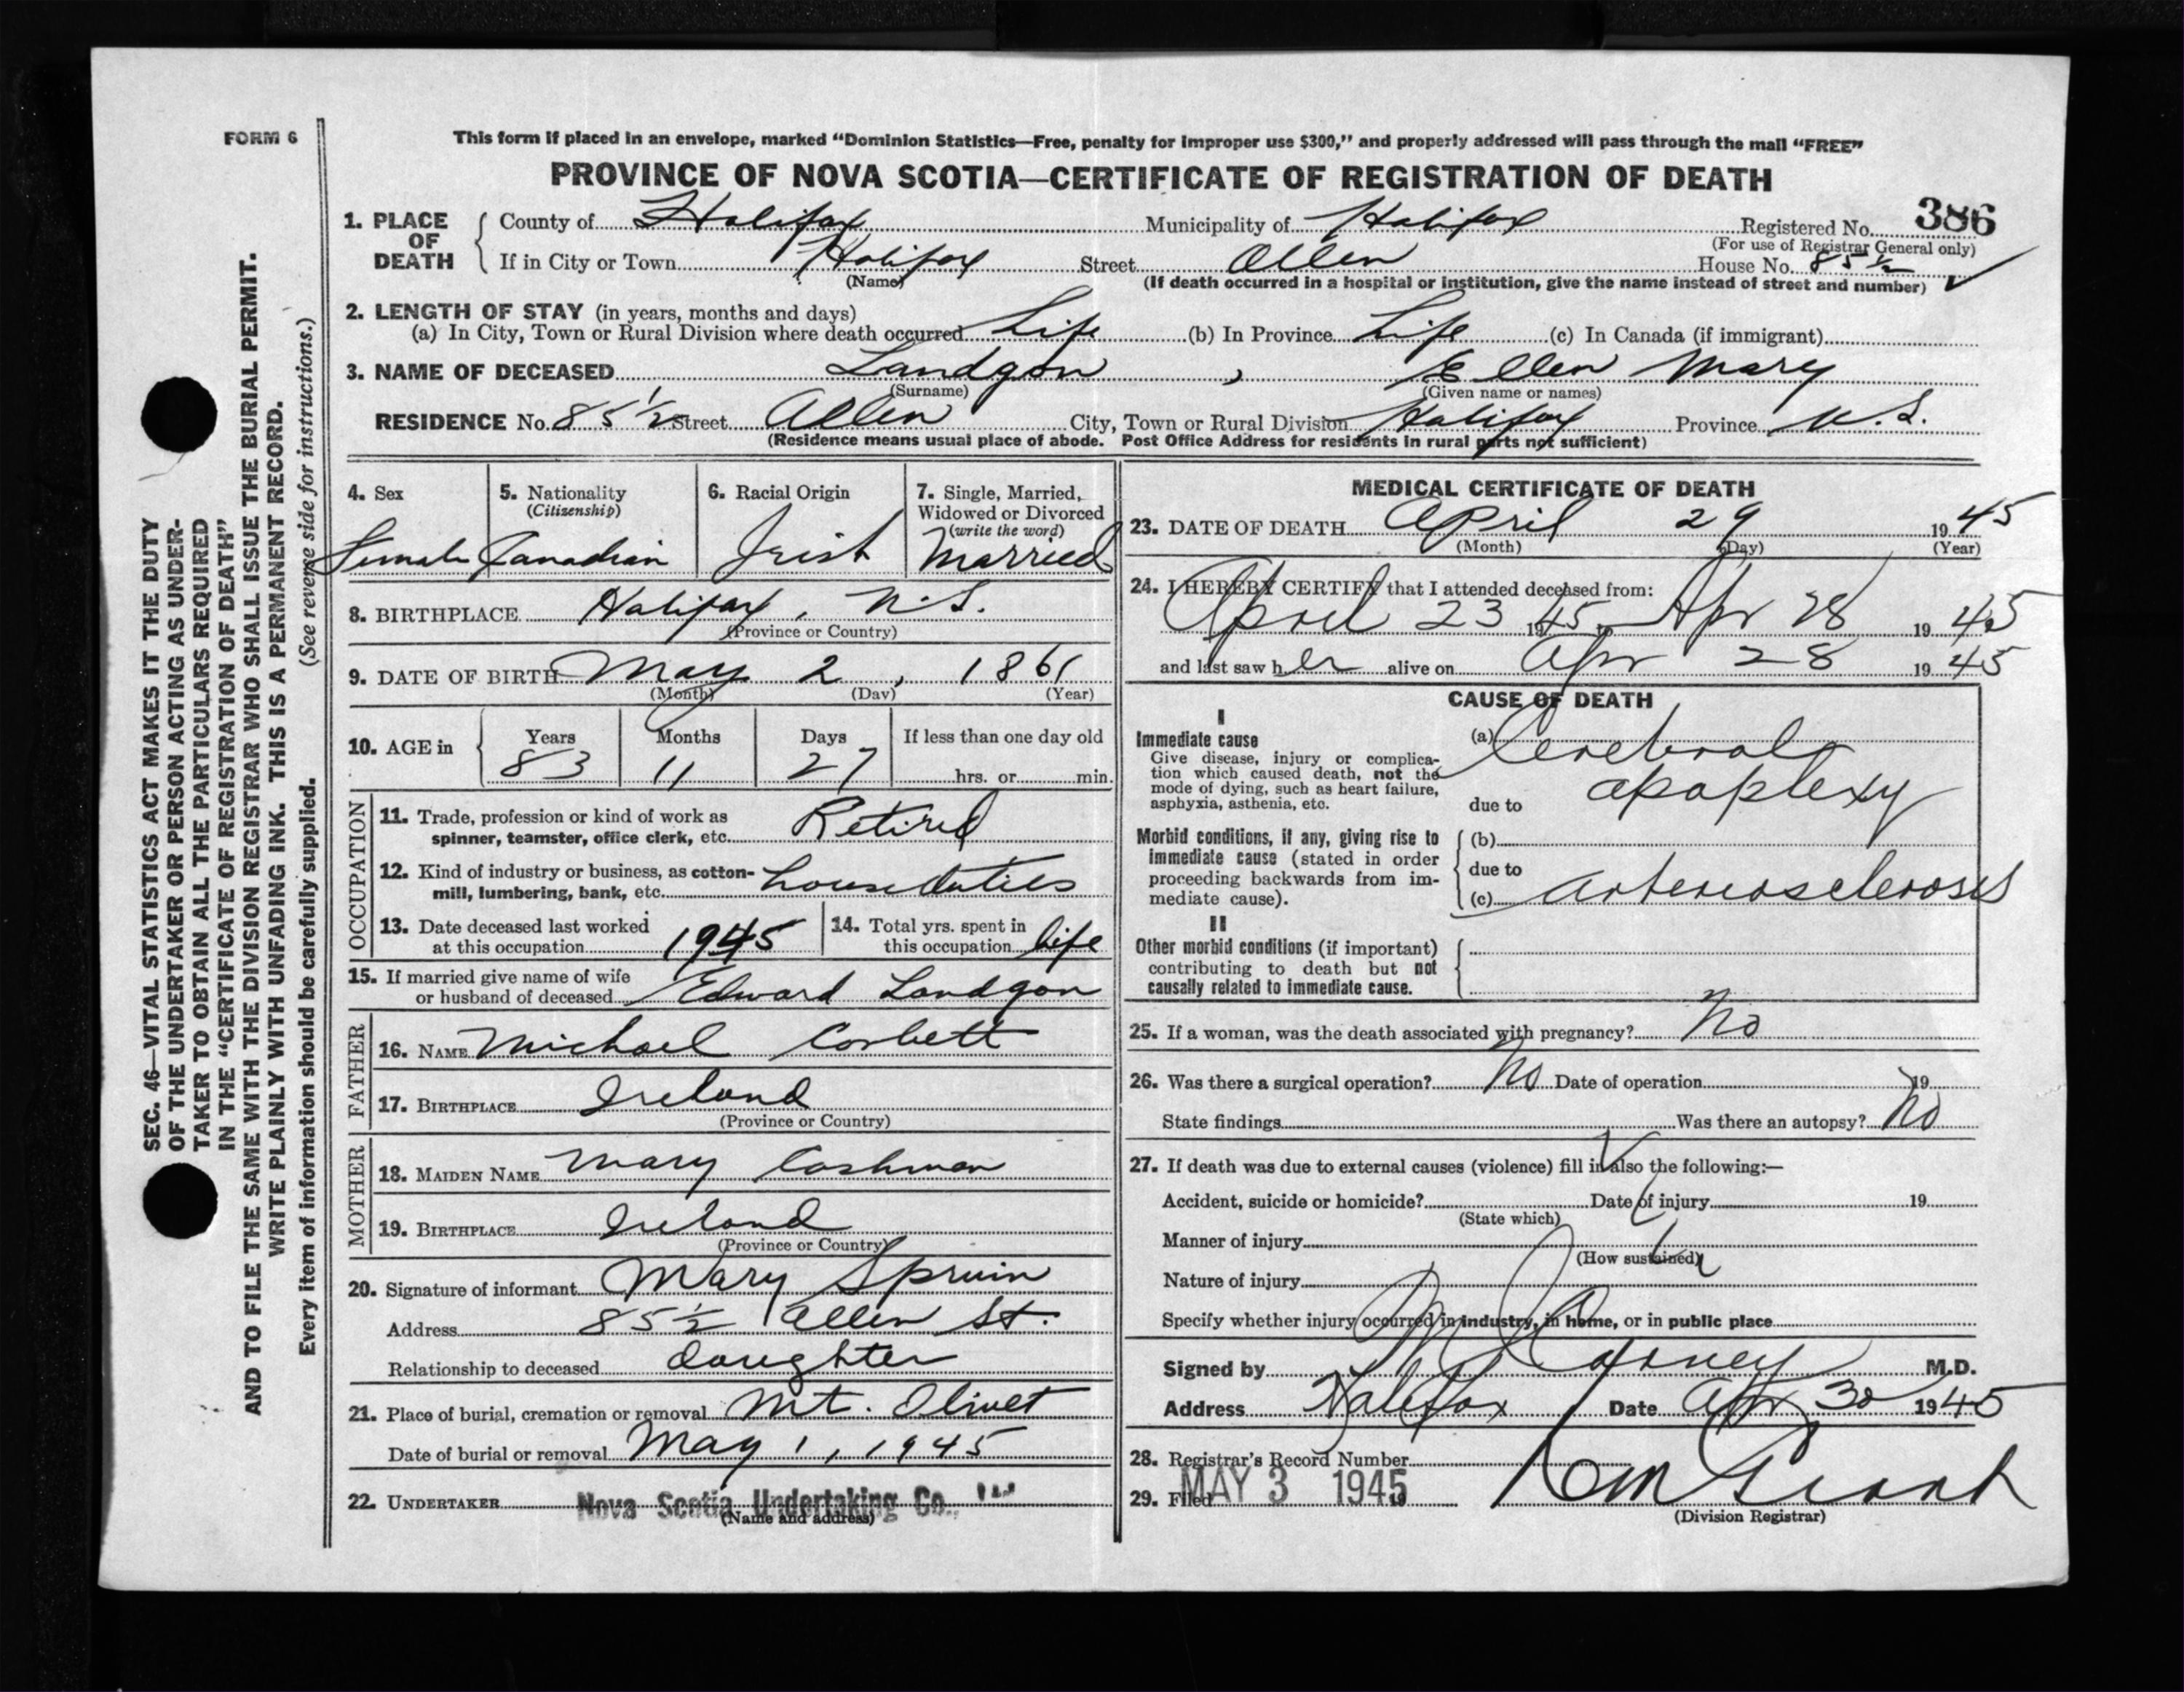 FORM 6
This form if placed in an envelope, marked “Dominion Statistics—Free, penalty for improper use $300,” and properly addressed will pass through the mail “FREE”
PROVINCE OF NOVA SCOTIA—CERTIFICATE OF REGISTRATION OF DEATH
386
1. PLACE OF DEATH { County of Halifax Municipality of Halifax Registered No.
(For use of Registrar General only)
If in City or Town Halifax Street Allen House No. 85½
(Name) (If death occurred in a hospital or institution, give the name instead of street and number)
2. LENGTH OF STAY (in years, months and days)
(a) In City, Town or Rural Division where death occurred Life (b) In Province Life (c) In Canada (if immigrant)
3. NAME OF DECEASED Landgon , Ellen Mary
(Surname) (Given name or names)
RESIDENCE No. 85½ Street Allen City, Town or Rural Division Halifax Province N.S.
(Residence means usual place of abode. Post Office Address for residents in rural parts not sufficient)
4. Sex
Female
5. Nationality
(Citizenship)
Canadian
6. Racial Origin
Irish
7. Single, Married,
Widowed or Divorced
(write the word)
Married
8. BIRTHPLACE Halifax, N.S.
(Province or Country)
9. DATE OF BIRTH May 2, 1861
(Month) (Day) (Year)
10. AGE in { Years Months Days If less than one day old
83 11 27 hrs. or min.
OCCUPATION
11. Trade, profession or kind of work as
spinner, teamster, office clerk, etc. Retired
12. Kind of industry or business, as cotton-
mill, lumbering, bank, etc. house duties
13. Date deceased last worked
at this occupation 1945
14. Total yrs. spent in
this occupation life
15. If married give name of wife
or husband of deceased Edward Landgon
FATHER
16. NAME Michael Corbett
17. BIRTHPLACE Ireland
(Province or Country)
MOTHER
18. MAIDEN NAME Mary Cashman
19. BIRTHPLACE Ireland
(Province or Country)
20. Signature of informant Mary Spruin
Address 85½ Allen St.
Relationship to deceased daughter
21. Place of burial, cremation or removal Mt. Olivet
Date of burial or removal May 1, 1945
22. UNDERTAKER Nova Scotia Undertaking Co.,
(Name and address)
MEDICAL CERTIFICATE OF DEATH
23. DATE OF DEATH April 29 1945
(Month) (Day) (Year)
24. I HEREBY CERTIFY that I attended deceased from:
April 23 1945 to Apr 28 1945
and last saw her alive on Apr 28 1945
CAUSE OF DEATH
I
Immediate cause
Give disease, injury or complica-
tion which caused death, not the
mode of dying, such as heart failure,
asphyxia, asthenia, etc.
(a) Cerebral
apoplexy
due to
Morbid conditions, if any, giving rise to
immediate cause (stated in order
proceeding backwards from im-
mediate cause).
(b)
due to
(c) arteriosclerosis
II
Other morbid conditions (if important)
contributing to death but not
causally related to immediate cause.
25. If a woman, was the death associated with pregnancy? No
26. Was there a surgical operation? No Date of operation 19
State findings Was there an autopsy? No
27. If death was due to external causes (violence) fill in also the following:—
Accident, suicide or homicide? Date of injury 19
(State which)
Manner of injury
(How sustained)
Nature of injury
Specify whether injury occurred in industry, in home, or in public place
Signed by M.D.
Address Halifax Date Apr 30 1945
28. Registrar's Record Number
29. Filed MAY 3 1945 19
(Division Registrar)
SEC. 46—VITAL STATISTICS ACT MAKES IT THE DUTY
OF THE UNDERTAKER OR PERSON ACTING AS UNDER-
TAKER TO OBTAIN ALL THE PARTICULARS REQUIRED
IN THE “CERTIFICATE OF REGISTRATION OF DEATH”
AND TO FILE THE SAME WITH THE DIVISION REGISTRAR WHO SHALL ISSUE THE BURIAL PERMIT.
WRITE PLAINLY WITH UNFADING INK. THIS IS A PERMANENT RECORD.
Every item of information should be carefully supplied. (See reverse side for instructions.)